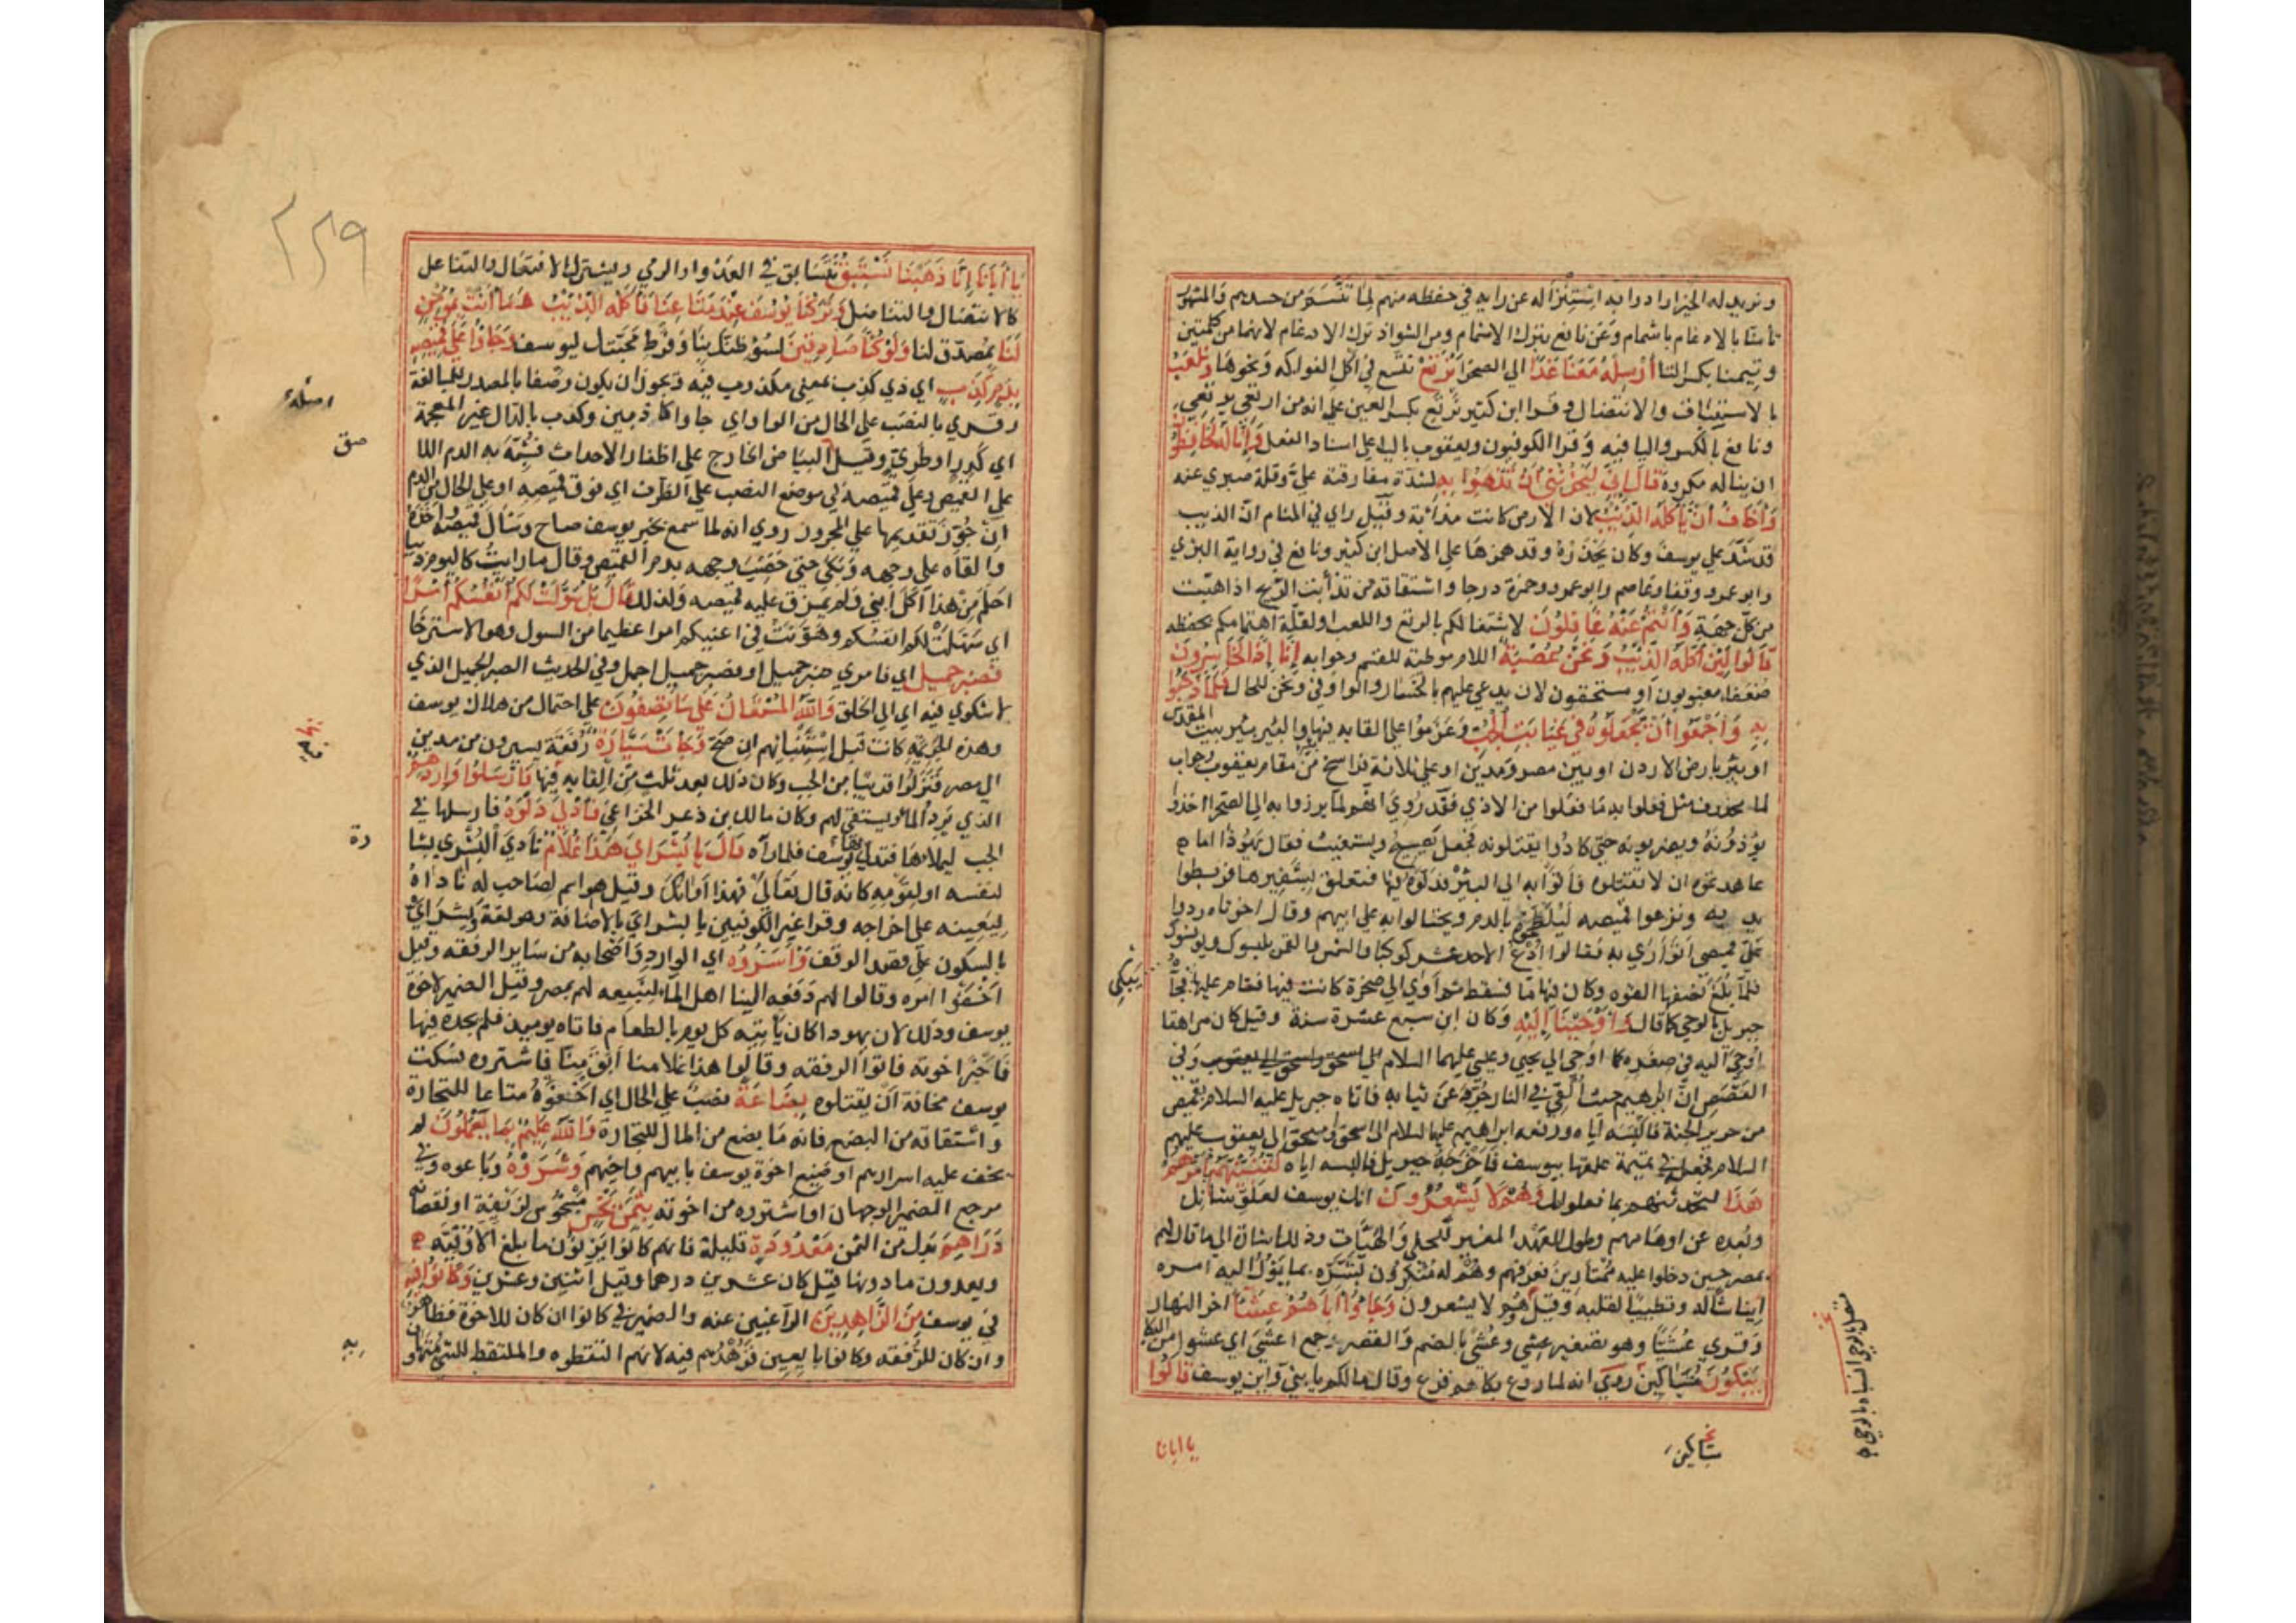 ونريد له الخير ارادوا به استنزاله عن رايه في حفظه منهم لما تنسم من حسدهم والمشهور
تأمنا بالادغام باشمام وعن نافع بترك الاشمام ومن الشواذ ترك الادغام لانهما من كلمتين
وتيمنا بكسر التا أرسله معنا غدا الى الصحرا نرتع نتسع في اكل الفواكه ونحوها ونلعب
بالاستباق والانتضال وقرا ابن كثير نرتع بكسر العين على انه من ارتعى يرتعي
ونافع بالكسر واليا فيه وقرا الكوفيون ويعقوب باليا على اسناد الفعل وإنا له لحافظون
ان يناله مكروه قال إني ليحزنني أن تذهبوا به لشدة مفارقته علي وقلة صبري عنه
وأخاف أن يأكله الذئب لان الارض كانت مذأبة وقيل راي في المنام ان الذيب
قد شد على يوسف وكان يحذره وقد همزها على الاصل ابن كثير ونافع في رواية البزي
وابو عمرو وقفا وعاصم وابو عمرو وحمزة درجا واشتقاقه من تذأبت الريح اذا هبت
من كل جهة وأنتم عنه غافلون لاشتغالكم بالرتع واللعب او لقلة اهتمامكم بحفظه
قالوا لئن أكله الذئب ونحن عصبة اللام موطئة للقسم وجوابه إنا إذا لخاسرون
ضعفا مغبونون او مستحقون لان يدعى عليهم بالخسار والواو في ونحن للحال فلما ذهبوا
به وأجمعوا أن يجعلوه في غيابت الجب وعزموا على القايه فيها والبير بير بيت المقدس
او بئر بارض الاردن او بين مصر ومدين او على ثلاثة فراسخ من مقام يعقوب وجواب
لما محذوف مثل فعلوا به ما فعلوا من الاذي فقد روي انهم لما برزوا به الى الصحرا اخذوا
يؤذونه ويضربونه حتى كادوا يقتلونه فجعل يصيح ويستغيث فقال يهوذا اما
عاهدتموني ان لا تقتلوه فأتوا به الى البئر فدلوه فيها فتعلق بشفيرها فربطوا
يديه ونزعوا قميصه ليلطخوه بالدم ويحتالوا به على ابيهم وقال اخوتاه ردوا
علي قميصي اتوارى به فقالوا ادع الاحد عشر كوكبا والشمس والقمر يلبسوك ويونسوك
فلما بلغ نصفها القوه وكان فيها ما فسقط ثم أوى الى صخرة كانت فيها فقام عليها فجآ
جبريل بالوحي كما قال وأوحينا إليه وكان ابن سبع عشرة سنة وقيل كان مراهقا
أوحي اليه في صغره كما اوحي الى يحيى وعيسى عليهما السلام وفي
القصص ان ابرهيم حيث ألقي في النار جرد عن ثيابه فاتاه جبريل عليه السلام بقميص
من حرير الجنة فالبسه اياه ودفعه ابراهيم عليه السلام الى اسحق واسحق الى يعقوب عليهم
السلام فجعل في تميمة علقها بيوسف فأخرجه جبريل فالبسه اياه لتنبئنهم بأمرهم
هذا لتحدثنهم بما فعلوا بك وهم لا يشعرون انك يوسف لعلو شانك
وبعده عن اوهامهم وطول العهد المغير للحلى والهيآت وذلك اشارة الى ما قال لهم
بمصر حين دخلوا عليه ممتارين فعرفهم وهم له منكرون بشره بما يؤل اليه امره
ايناسا له وتطييبا لقلبه وقيل وهم لا يشعرون وجاؤا أباهم عشاء اخر النهار
وقري عشيا وهو تصغير عشي وعشى بالضم والقصر جمع اعشى اي عشوا من البكا
يبكون متباكين روي انه لما سمع بكاهم فزع وقال مالكم يا بني واين يوسف قالوا
يا ابانا
يا أبانا إنا ذهبنا نستبق نتسابق في العدو او الرمي وقد يشترك الافتعال والتفاعل
كالانتضال والتناضل وتركنا يوسف عند متاعنا فأكله الذئب وما أنت بمؤمن
لنا بمصدق لنا ولو كنا صادقين لسؤ ظنك بنا وفرط محبتك ليوسف وجاؤا على قميصه
بدم كذب اي ذي كذب بمعنى مكذوب فيه ويجوز ان يكون وصفا بالمصدر للمبالغة
وقري بالنصب على الحال من الواو اي جاوا كاذبين وكدب بالدال غير المعجمة
اي كدر او طري وقيل اصله البياض الخارج على اظفار الاحداث فشبه به الدم اللاصق
على القميص وعلى قميصه في موضع النصب على الظرف اي فوق قميصه او على الحال من الدم
ان جوز تقديمها على المجرور روي انه لما سمع بخبر يوسف صاح وسال قميصه فاخذه
والقاه على وجهه وبكى حتى خضب وجهه بدم القميص وقال ما رايت كاليوم ذيبا
احلم من هذا أكل ابني ولم يمزق عليه قميصه ولذلك قال بل سولت لكم أنفسكم أمرا
اي سهلت لكم انفسكم وهونت في اعينكم امرا عظيما من السول وهو الاسترخا
فصبر جميل اي فامري صبر جميل او فصبر جميل اجمل وفي الحديث الصبر الجميل الذي
لا شكوى فيه اي الى الخلق والله المستعان على ما تصفون على احتمال من هلاك يوسف
وهذه الجريمة كانت قبل استنبائهم ان صح وجاءت سيارة رفقة يسيرون من مدين
الى مصر فنزلوا قريبا من الجب وكان ذلك بعد ثلث من القايه فيها فأرسلوا واردهم
الذي يرد الماء ويستقي لهم وكان مالك بن ذعر الخزاعي فأدلى دلوه فارسلها في
الجب ليملاها فتدلى بها يوسف فلما رآه قال يا بشراي هذا غلام نادي البشرى بشارة
لنفسه او لقومه كانه قال تعالى فهذا أوانك وقيل هو اسم لصاحب له ناداه
ليعينه على اخراجه وقرا غير الكوفيين يا بشراي بالاضافة وهو لغة وبشراي
بالسكون على قصد الوقف وأسروه اي الوارد واصحابه من ساير الرفقة وقيل
اخفوا امره وقالوا لهم دفعه الينا اهل الماء لنبيعه لهم بمصر وقيل الضمير لاخوة
يوسف وذلك لان يهودا كان يأتيه كل يوم بالطعام فاتاه يوميذ فلم يجده فيها
فأخبر اخوته فاتوا الرفقه وقالوا هذا غلامنا ابق منا فاشتروه فسكت
يوسف مخافة أن يقتلوه بضاعة نصب على الحال اي اخفوه متاعا للتجارة
واشتقاقه من البضع فانه ما بضع من المال للتجارة والله عليم بما يعملون لم
يخف عليه اسرارهم او صنيع اخوة يوسف بابيهم واخيهم وشروه وباعوه وفي
مرجع الضمير الوجهان او اشتروه من اخوته بثمن بخس مبخوس لزيفه او نقصانه
دراهم بدل من الثمن معدودة قليلة فانهم كانوا يزنون ما بلغ الاوقيه
ويعدون ما دونها قيل كان عشرين درهما وقيل اثنين وعشرين وكانوا فيه
في يوسف من الزاهدين الراغبين عنه والضمير في كانوا ان كان للاخوة فظاهر
وان كان للرفقه وكانوا بايعين فزهدهم فيه لانهم التقطوه والملتقط للشئ متهاون